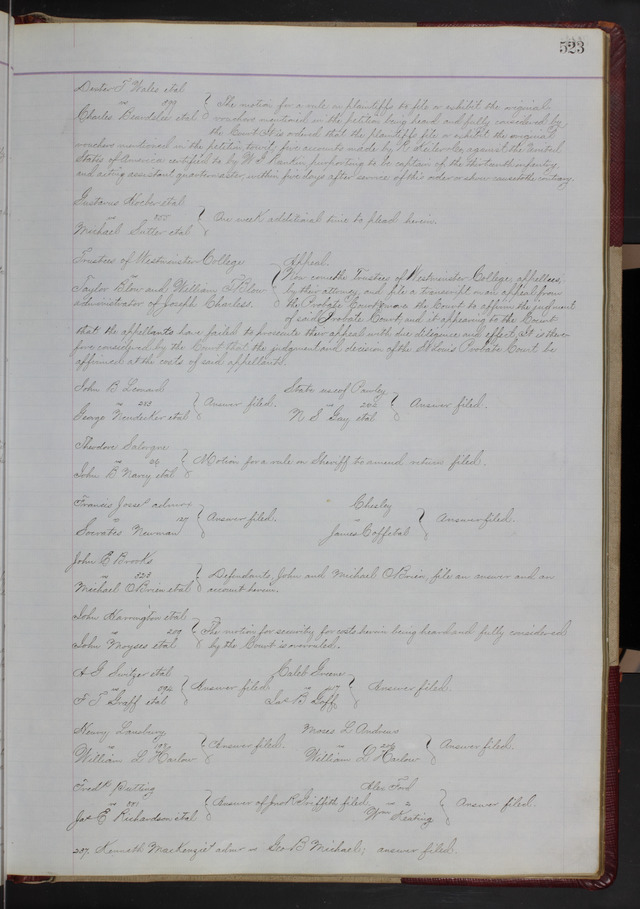 523
Denter T Wales etal
vs 599
Charles Beardslee etal
The motion for a rule on plaintiffs to file or exhibit the original
vouchers mentioned in the petition being heard and fully considered by
the Court It is ordered that the plaintiffs file or exhibit the original
vouchers mentioned in the petition towit, five accounts made by against the United
States of America certified to by W Rankin purporting to be captain of the Thirteenth infantry
and acting assistant quartermaster within five days after service of this order or show cause to the contrary.
Gustavus Kocher etal
vs
Michael Sutter etal
One week additional time to plead herein.
Trustees of Westminster College
vs
Taylor Blow and William T Blow
administrator of Joseph Charless.
Appeal.
Now come the Trustees of Westminster College, appellees
by their attorney and file a transcript on an appeal from
the Probate Court the Court to affirm the judgment
of said Probate Court, and it appearing to the Court
that the appellants have failed to prosecute their appeal with due diligence and effect, It is there-
fore considered by the Court that the judgment and decision of the St Louis Probate Court be
affirmed at the costs of said appellants.
John B Leonard
vs 252
George Neudecker etal
Answer filed.
State use of Pawley
vs 202
N S Gay etal
Answer filed.
Theodore Salorgne
vs 26
John B Narcy etal
Motion for a rule on Sheriff to amend return filed.
Francis Josse admr
vs 127
Socrates Newman
Answer filed.
Chesley
vs
James Coffetal
Answer filed.
John E Brooks
vs 323
Michael OBrien etal
Defendants, John and Michael OBrien, file an answer and an
account herein.
John Harrington etal
vs 259
John Moyses etal
The motion for security for costs herein being heard and fully considered
by the Court is overruled.
A G Switzer etal
vs 394
F T Graff etal
Answer filed
Caleb Greene
vs 17
Jas B Goff
Answer filed.
Henry Lansbury
vs
William L Harlow
Answer filed.
Moses L Andrews
vs
William L Harlow
Answer filed.
Fredk Butting
vs 331
Jas E Richardson etal
Answer of Griffith filed.
Alex Ford
vs 2
Wm Keating
Answer filed.
237. Kenneth MacKenzie's admr vs Geo B Michael; answer filed.